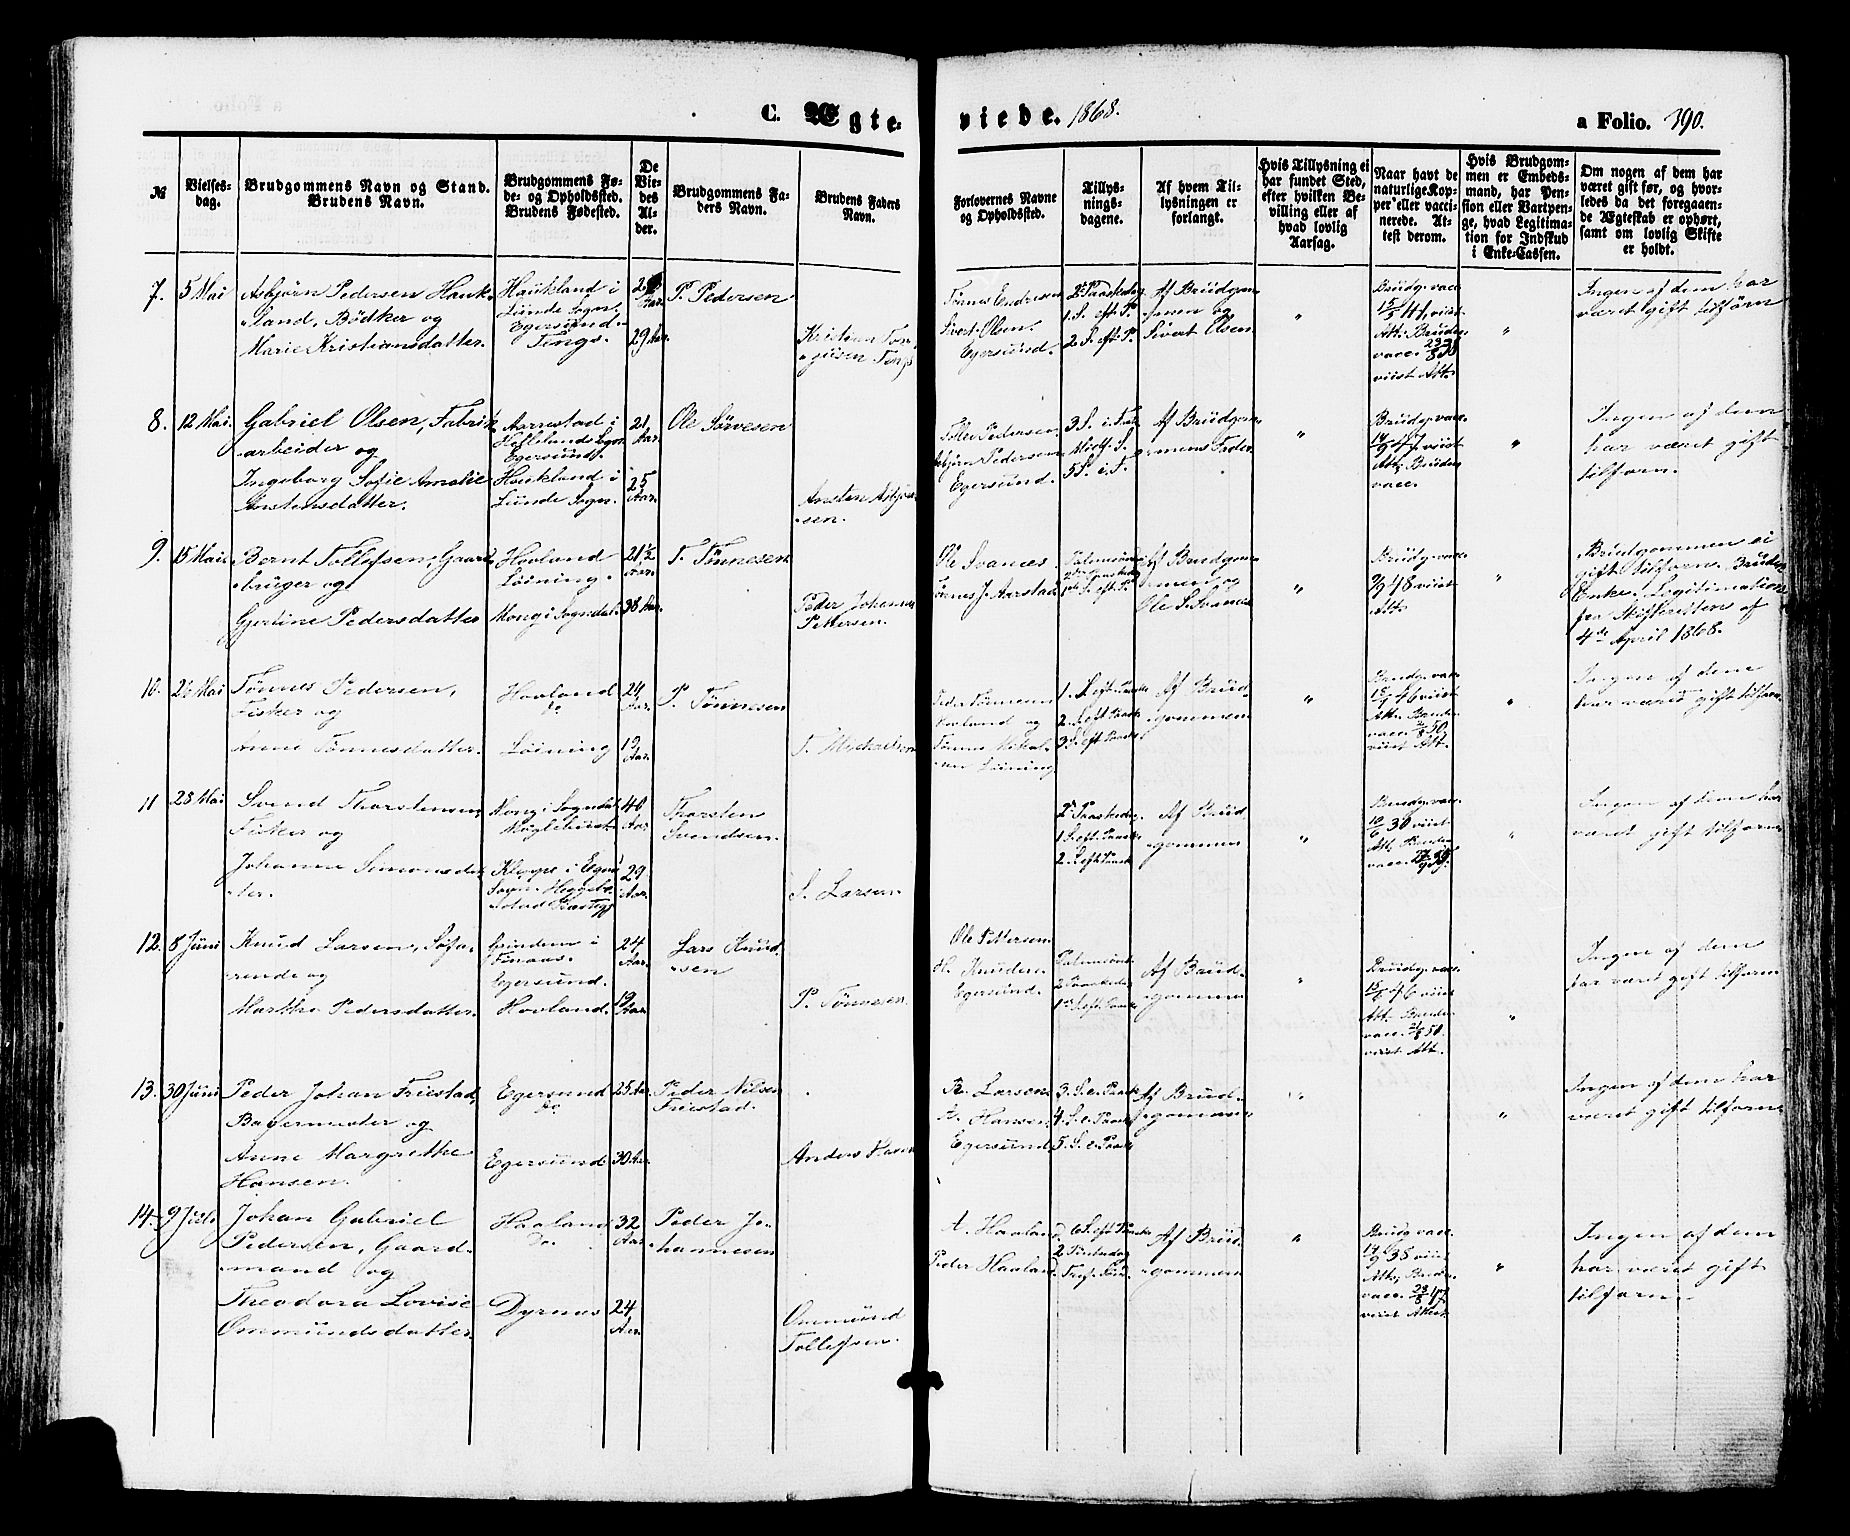 C. Ægte-
viede. 1868.
a Folio. 390.
№
Vielses-
dag.
Brudgommens Navn og Stand.
Brudens Navn.
Brudgommens Fø-
de- og Opholdssted.
Brudens Fødested.
De
Vie-
des
Al-
der.
Brudgommens Fa-
ders Navn.
Brudens Faders
Navn.
Forlovernes Navne
og Opholdssted.
Tillys-
nings-
dagene.
Af hvem Til-
lysningen er
forlangt.
Hvis Tillysning ei
har fundet Sted,
efter hvilken Be-
villing eller af
hvad lovlig
Aarsag.
Naar havt de
naturlige Kop-
per eller vacci-
nerede. At-
test derom.
Hvis Brudgom-
men er Embeds-
mand, har Pen-
sion eller Vartpen-
ge, hvad Legitima-
tion for Indskud
i Enke-Cassen.
Om nogen af dem har
været gift før, og hvor-
ledes da det foregaaen-
de Ægteskab er ophørt,
samt om lovlig Skifte
er holdt.
7. 5 Mai
Asbjørn Pedersen Hauk-
land, Bødker og
Marie Kristiansdatter.
Haukland i
Lunde Sogn.
Egersund.
Tengs.
Aar.
29 Aar.
P. Pedersen
Kristian Tøn-
Tengs
Tønnes Endresen
Sivert Olsen.
Egersund.
2 Paaskedag
1. S. eft. P.
2 S. eft. P.
Af Brudgom-
men og
Sivert Olsen
"
Brudg. vacc.
41, viist
Att. Bruden
vacc.
viist Att.
"
Ingen af dem har
været gift tilforn
8. 12 Mai.
Gabriel Olsen, Fabrik-
arbeider og
Ingeborg Sofie Amalie
Anstensdatter.
Aarrestad i
Hellelands Sogn
Egersund.
Haukland i
Lunde Sogn.
21
Aar.
25
Aar.
Ole Sørvesen
Ansten Asbjørn-
sen.
Pedersen.
Asbjørn Pedersen
Egersund.
3 S. i Faste
Midf. S.
5 S. i F.
Af Brudgom-
mens Fader
"
Brudg. vacc.
47 viist
Att; Bruden
vacc.
"
Ingen af dem
har været gift
tilforn.
9. 15 Mai
Bernt Tollefsen, Gaard-
bruger og
Gjertine Pedersdatter
Hovland
Løining.
Mong i Sogndal.
21 1/2
Aar.
38 Aar.
T. Tønnesen
Peder Johannes
Pettersen.
Ole Svanes
Tønnes J. Aarstad
Palmesøn
2den Paaskedag
1ste S. eft. P.
Af Brudgom-
men og
Ole S. Svanes
"
Brudg. vacc.
48 viist
Att.
"
Brudgommen ei
gift tilforn. Bruden
Enke. Legitimation
fra Skifteretten af
4de April 1868.
10. 26 Mai
Tønnes Pedersen,
Fisker og
Anne Tønnesdatter.
Hovland
do
Løining
24
Aar.
19
Aar.
P. Tønnesen
T. Michelsen
Peder Tønnesen
Hovland og
Tønnes Mikal-
sen Løining
1. S. eft. Paaske
2. S. eft. Paask
3. S. eft. Paaske
Af Brud-
gommen
"
Brudg. vacc.
46 viist
Att. Bruden
vacc. 50.
viist Att.
"
Ingen af dem
har været gift tilforn
11 28 Mai
Svend Thorstensen,
Fisker og
Johanne Simonsdat-
ter.
Mong i Sogndal.
Møglebust
Kleppe i Egers.
Sogn. Heggebø-
40
Aar
29
Aar.
Thorsten
Svendsen.
S. Larsen.
2 Paaskedag
1 S. eft. Paask
2. S. eft. Paask
Af Brud-
gommen
"
Brudg. vacc.
30 viist
Att; Bruden
vacc.
"
Ingen af dem har
været gift tilforn
12. 8 Juni
Knud Larsen, Søfa-
rende og
Marthe Pedersdatter.
Grindem i
Finaas.
Egersund.
Hovland.
24
Aar.
19
Aar.
Lars Knud-
sen
P. Tønnesen.
Ole Pettersen
H. Knudsen.
Egersund.
Palmesønd.
2 Paaskedag
1 S. eft. Paask
Af Brud-
gommen
"
Brudg. vacc.
46 viist
Att. Bruden
vacc. 50.
viist Att.
"
Ingen af dem
har været gift tilforn
13. 30 Juni
Peder Johan Friestad,
Bagermester og
Anne Margrethe
Hansen.
Egersund
do
Egersund
25 Aar.
30 Aar.
Peder Nilsen
Friestad.
Anders
R. Larsen
A. Hansen
Egersund
3. S. e. Paask
4. S. e. Paask
5. S. e. Paask
Af Brud-
gommen
"
"
Ingen af dem har
været gift tilforn
14. 9 Juli
Johan Gabriel
Pedersen, Gaard-
mand og
Theodora Lovise
Ommundsdatter.
Havland
Do.
Dyrnes
32
Aar.
24
Aar.
Peder Jo-
hannesen
Ommund
Tollefsen.
A. Havland
Peder Havland
6 S. eft. Paaske
2 Pintsedag
Tref. Sønd.
Af Brud-
gommen
"
Brudg. vacc.
38 viist
Att; Bruden
vacc. 47
viist Attest.
"
Ingen af dem
har været gift
tilforn.